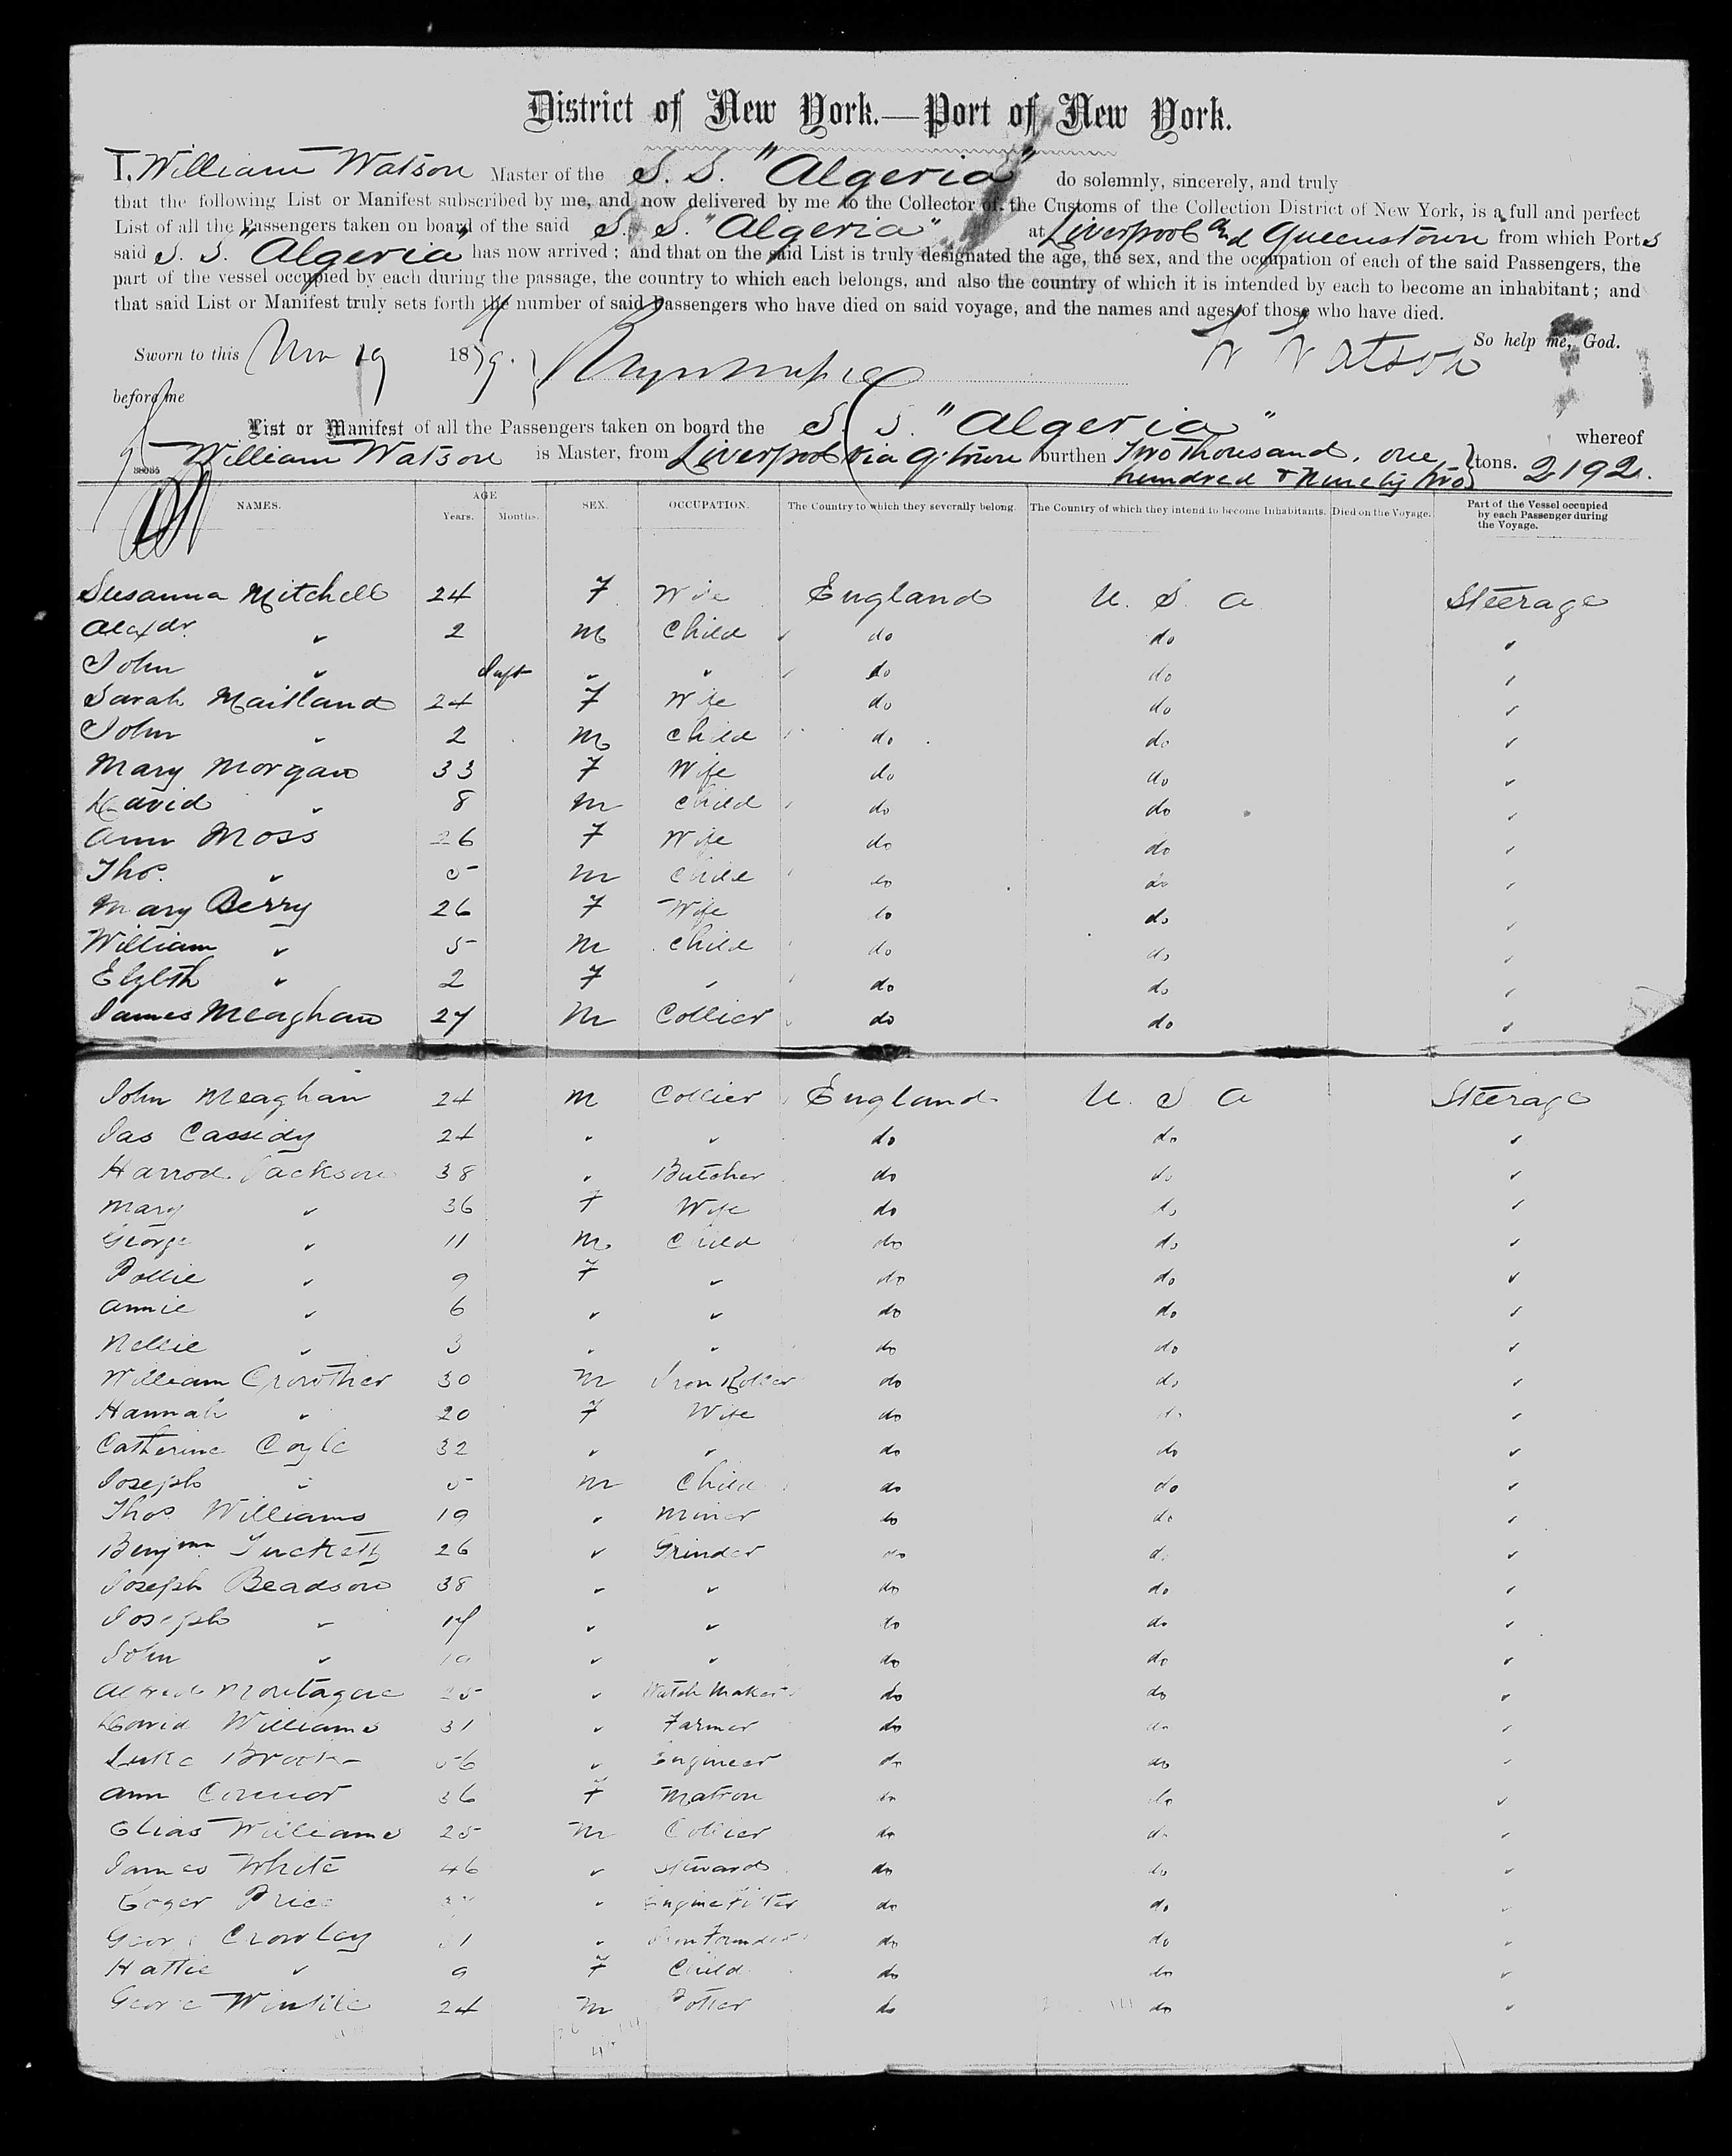 District of New York.—Port of New York.
I, William Watson Master of the S. S. "Algeria" do solemnly, sincerely, and truly
that the following List or Manifest subscribed by me, and now delivered by me to the Collector of the Customs of the Collection District of New York, is a full and perfect
List of all the Passengers taken on board of the said S. S. "Algeria" at Liverpool and Queenstown from which Ports
said S. S. "Algeria" has now arrived; and that on the said List is truly designated the age, the sex, and the occupation of each of the said Passengers, the
part of the vessel occupied by each during the passage, the country to which each belongs, and also the country of which it is intended by each to become an inhabitant; and
that said List or Manifest truly sets forth the number of said Passengers who have died on said voyage, and the names and ages of those who have died.
So help me, God.
Sworn to this Nov 19 1879. W Watson
before me
List or Manifest of all the Passengers taken on board the S. S. "Algeria" whereof
William Watson is Master, from Liverpool via Q.town burthen Two Thousand, one hundred & Ninety two tons. 2192.
NAMES. AGE Years. Months. SEX. OCCUPATION. The Country to which they severally belong. The Country of which they intend to become Inhabitants. Died on the Voyage. Part of the Vessel occupied by each Passenger during the Voyage.
Susanna Mitchell 24 F Wife England U. S. A Steerage
Alexdr. " 2 M Child do do "
John " Inft " " do do "
Sarah Maitland 24 F Wife do do "
John " 2 M Child do do "
Mary Morgan 33 F Wife do do "
David " 8 M Child do do "
Ann Moss 26 F Wife do do "
Thos. " 5 M Child do do "
Mary Berry 26 F Wife do do "
William " 5 M Child do do "
Elzbth " 2 F " do do "
James Meaghan 27 M Collier do do "
John Meaghan 24 M Collier England U. S. A Steerage
Jas Cassidy 24 " " do do "
Harrod Jackson 38 " Butcher do do "
Mary " 36 F Wife do do "
George " 11 M Child do do "
Pollie " 9 F " do do "
Annie " 6 " " do do "
Nellie " 3 " " do do "
William Crowther 30 M Iron Roller do do "
Hannah " 20 F Wife do do "
Catherine Coyle 32 " " do do "
Joseph " 5 M Child do do "
Thos Williams 19 " Miner do do "
Benjmn. Tuckett 26 " Grinder do do "
Joseph Beadson 38 " " do do "
Joseph " 17 " " do do "
John " " " do do "
Alfred Montague 25 " Watch Maker do do "
David Williams 31 " Farmer do do "
Luke " Engineer do do "
Ann Connor 36 F Matron do do "
Elias Williams 25 M Collier do do "
James White 46 " Steward do do "
Roger Price " Engine Fitter do do "
George Crowley " Iron Founder do do "
Hattie " 9 F Child do do "
George 24 M Potter do do "